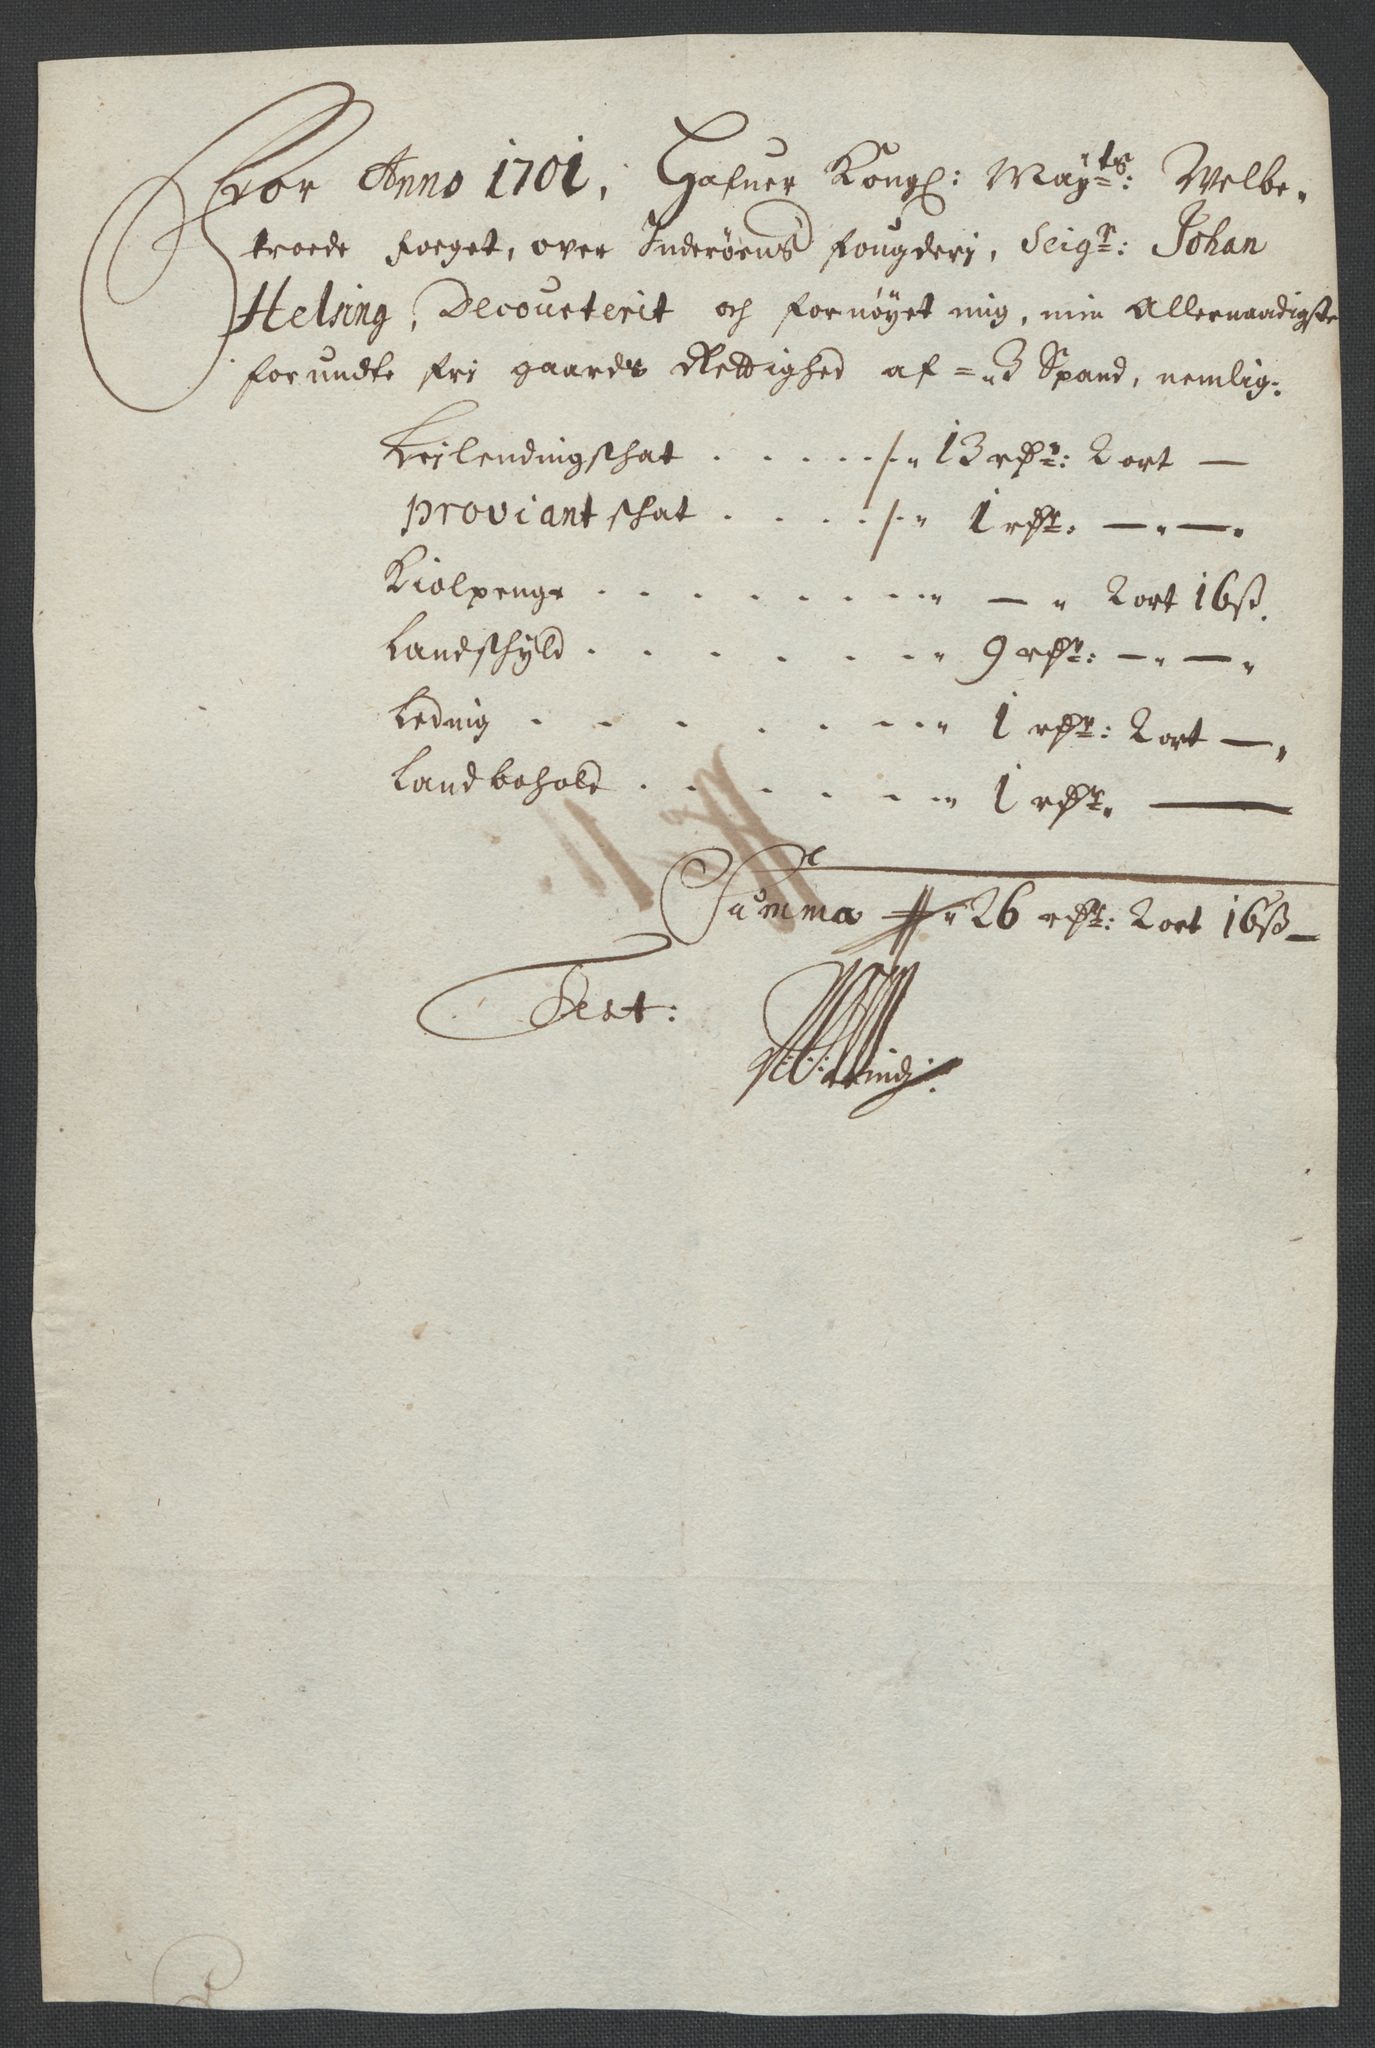 For Anno 1701, Hafuer Kongl: Mayts: Welbe-
troede foeget, over Inderøens fougderj, Seigr: Johan
Helsing, Decourterit och fornøyet mig, min Allernaadigste
forundte frj gaards Rettighed af = 3 Spand, nemlig:
Leilendingschat . . . . ./. 13 rdr: 2 ort —
proviantschat . . . ./. 1 rdr: — " — "
Kiolpenge . . . . . . . . — " 2 ort 16 ß.
Landschyld . . . . . . . 9 rdr: — " — "
Leding . . . . . . . 1 rdr: 2 ort — "
Landbohold . . . . . . 1 rdr. —
Summa 26 rdr: 2 ort 16 ß —
Test: